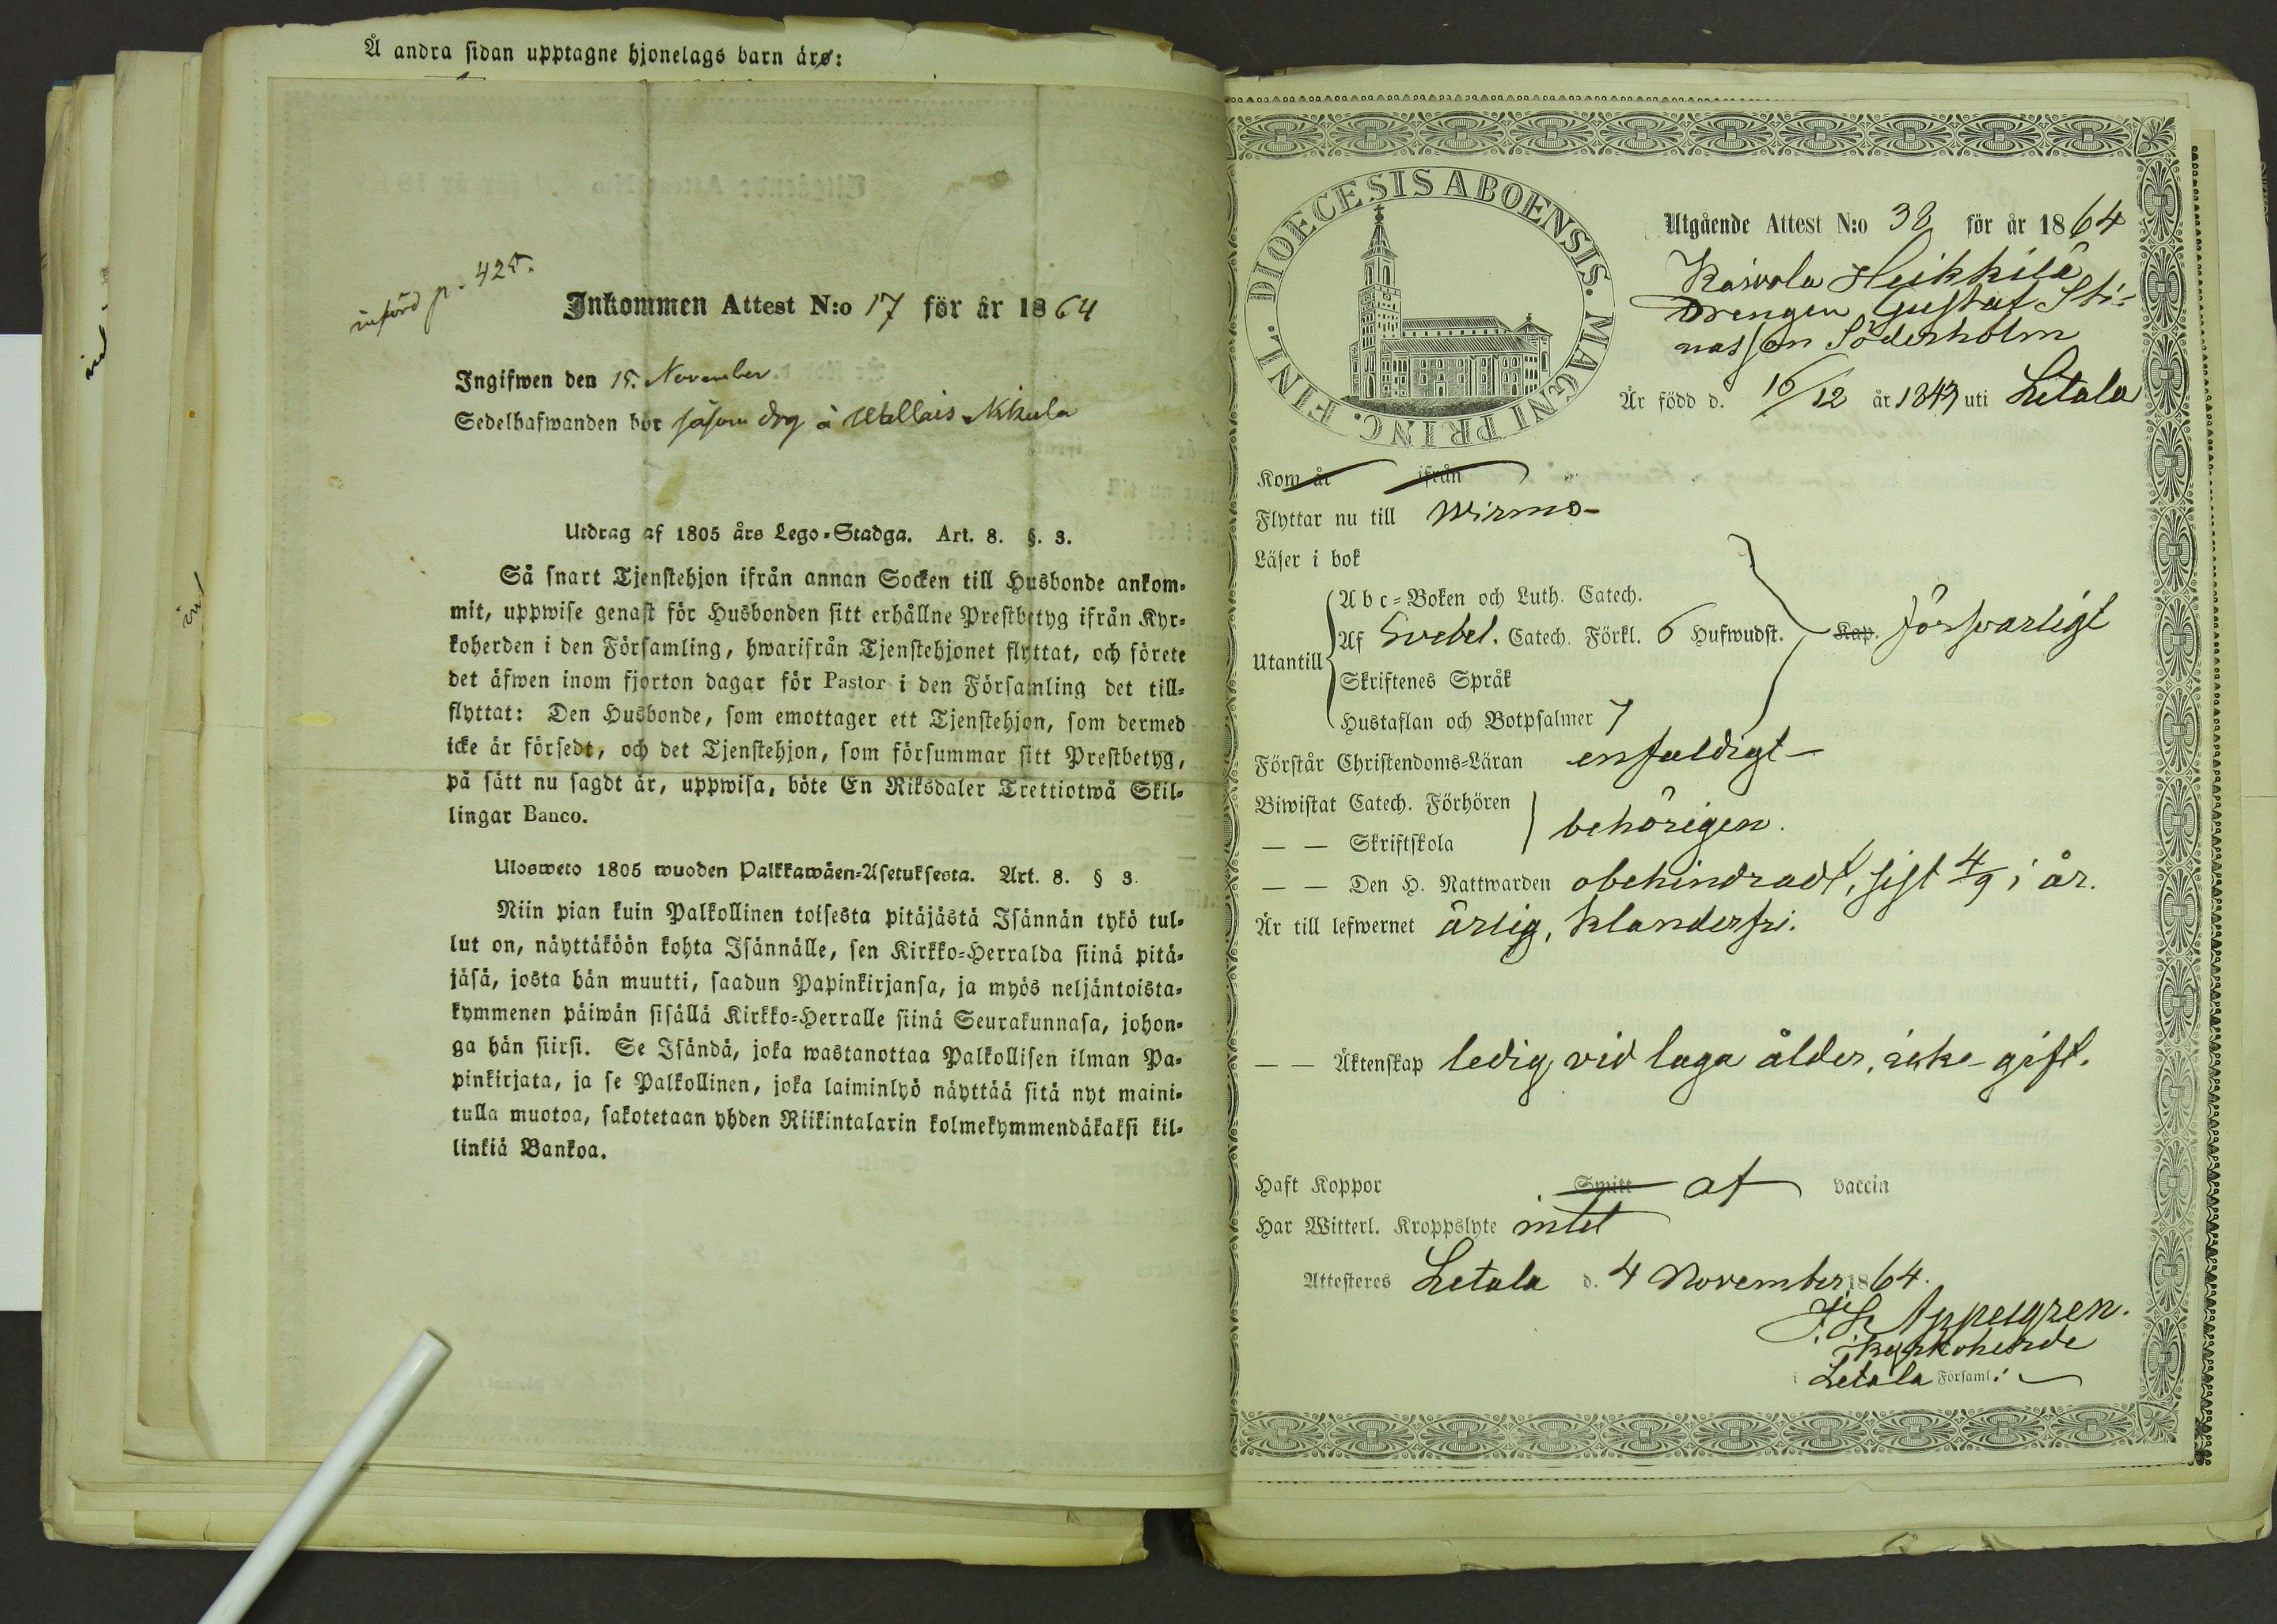 Å andra sidan upptagne hjonelags barn äro:
införd p. 425.
Inkommen Attest N:o 17 för år 1864
Ingifwen den 15. November
Sedelhafwanden bor såsom drg å Wallais Nikula
Utdrag af 1805 års Lego-Stadga. Art. 8. §. 3.
Så snart Tjenstehjon ifrån annan Socken till Husbonde ankom-
mit, uppwise genast för Husbonden sitt erhållne Prestbetyg ifrån Kyr-
koherden i den Församling, hwarifrån Tjenstehjonet flyttat, och förete
det äfwen inom fjorton dagar för Pastor i den Församling det till-
flyttat: Den Husbonde, som emottager ett Tjenstehjon, som dermed
icke är försedt, och det Tjenstehjon, som försummar sitt Prestbetyg,
på sätt nu sagdt är, uppwisa, böte En Riksdaler Trettiotwå Skil-
lingar Banco.
Ulosweto 1805 wuoden Palkkawäen-Asetuksesta. Art. 8. § 3.
Niin pian kuin Palkollinen toisesta pitäjästä Isännän tykö tul-
lut on, näyttäköön kohta Isännälle, sen Kirkko-Herralda siinä pitä-
jäsä, josta hän muutti, saadun Papinkirjansa, ja myös neljäntoista-
kymmenen päiwän sisällä Kirkko-Herralle siinä Seurakunnasa, johon-
ga hän siirsi. Se Isändä, joka wastanottaa Palkollisen ilman Pa-
pinkirjata, ja se Palkollinen, joka laiminlyö näyttää sitä nyt maini-
tulla muotoa, sakotetaan yhden Riikintalarin kolmekymmendäkaksi kil-
linkiä Bankoa.
DIOECESIS ABOENSIS. MAGNI PRINC. FINL.
Utgående Attest N:o 38 för år 1864
Kaivola Heikkilä
Drengen Gustaf Sti-
nasson Söderholm
Är född d. 16/12 år 1843 uti Letala
Kom år ifrån
Flyttar nu till Wirmo
Läser i bok
Utantill
Abc-Boken och Luth. Catech.
Af Svebel. Catech. Förkl. 6 Hufwudst. Kap. försvarligt
Skriftenes Språk
Hustaflan och Botpsalmer 7
Förstår Christendoms-Läran enfaldigt
Biwistat Catech. Förhören
— — Skriftskola behörigen.
— — Den H. Nattwarden obehindradt, sist 4/9 i år.
Är till lefwernet ärlig, klanderfri.
— — Äktenskap ledig, vid laga ålder, icke gift.
Haft Koppor Smitt af vaccin
Har Witterl. Kroppslyte intet
Attesteres Letala d. 4 November 1864.
F. H. Appelgren.
Kyrkoherde
i Letala Församl: